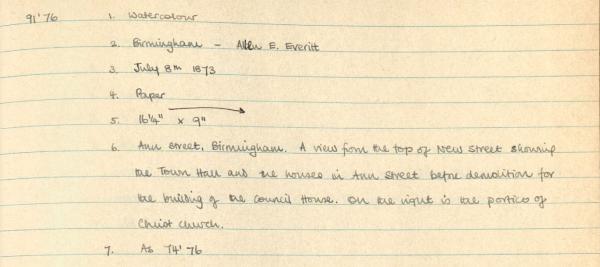 91'76 1. Watercolour
2. Birmingham - Allen E. Everitt
3. July 8th 1873
4. Paper
5. 16¼" x 9"
6. Ann Street, Birmingham. A view from the top of New Street showing
the Town Hall and the houses in Ann Street before demolition for
the building of the Council House. On the right is the portico of
Christ Church.
7. As 74'76